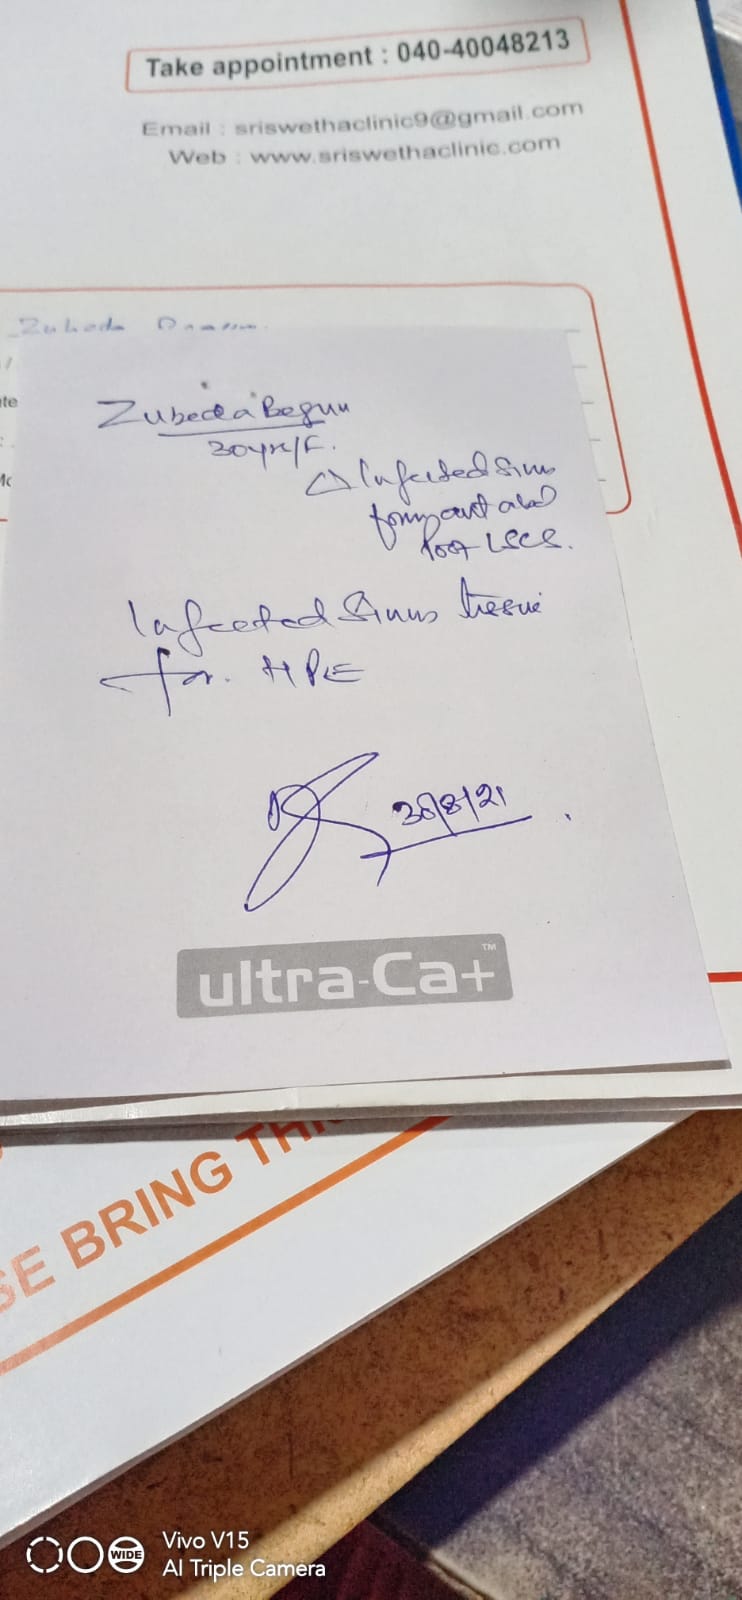 Take appointment : 040-40048213
Email : sriswethaclinic9@gmail.com
Web : www.sriswethaclinic.com
Zubeda
te
Zubeda Begum
30yrs/F.
△ Infected Sinus
ant abd
Post LSCS.
Infected Sinus tissue
for. HPE
30/8/21
ultra-Ca+™
SE BRING THI
WIDE
Vivo V15
AI Triple Camera